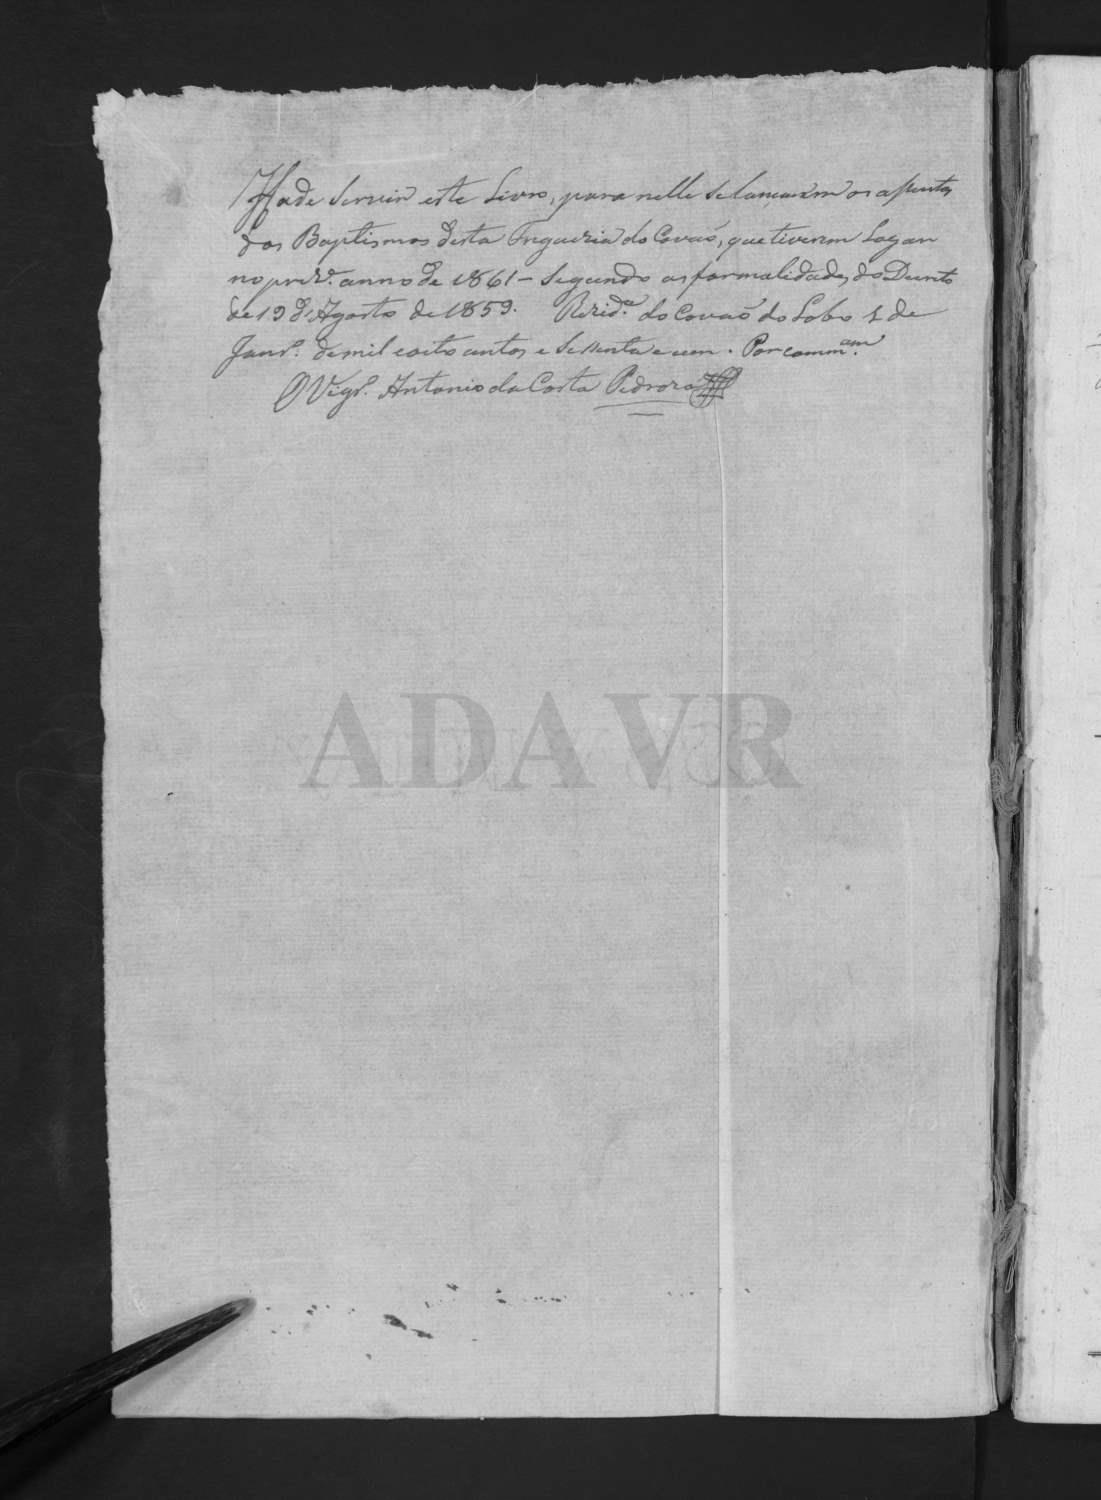 Hade Servir este Livro, para nelle se lançarem os assentos
dos Baptismos desta Freguezia do Covaõ, que tiverem Logar
no prez.e anno de 1861 – Segundo as formalidades do Decreto
de 19 d'Agosto de 1859. Rezid.a do Covaõ do Lobo 1 de
Janr.o de mil e oito centos e Sessenta e um. Por comm.am
O Vigr.o Antonio da Costa Pedroza
ADAVR